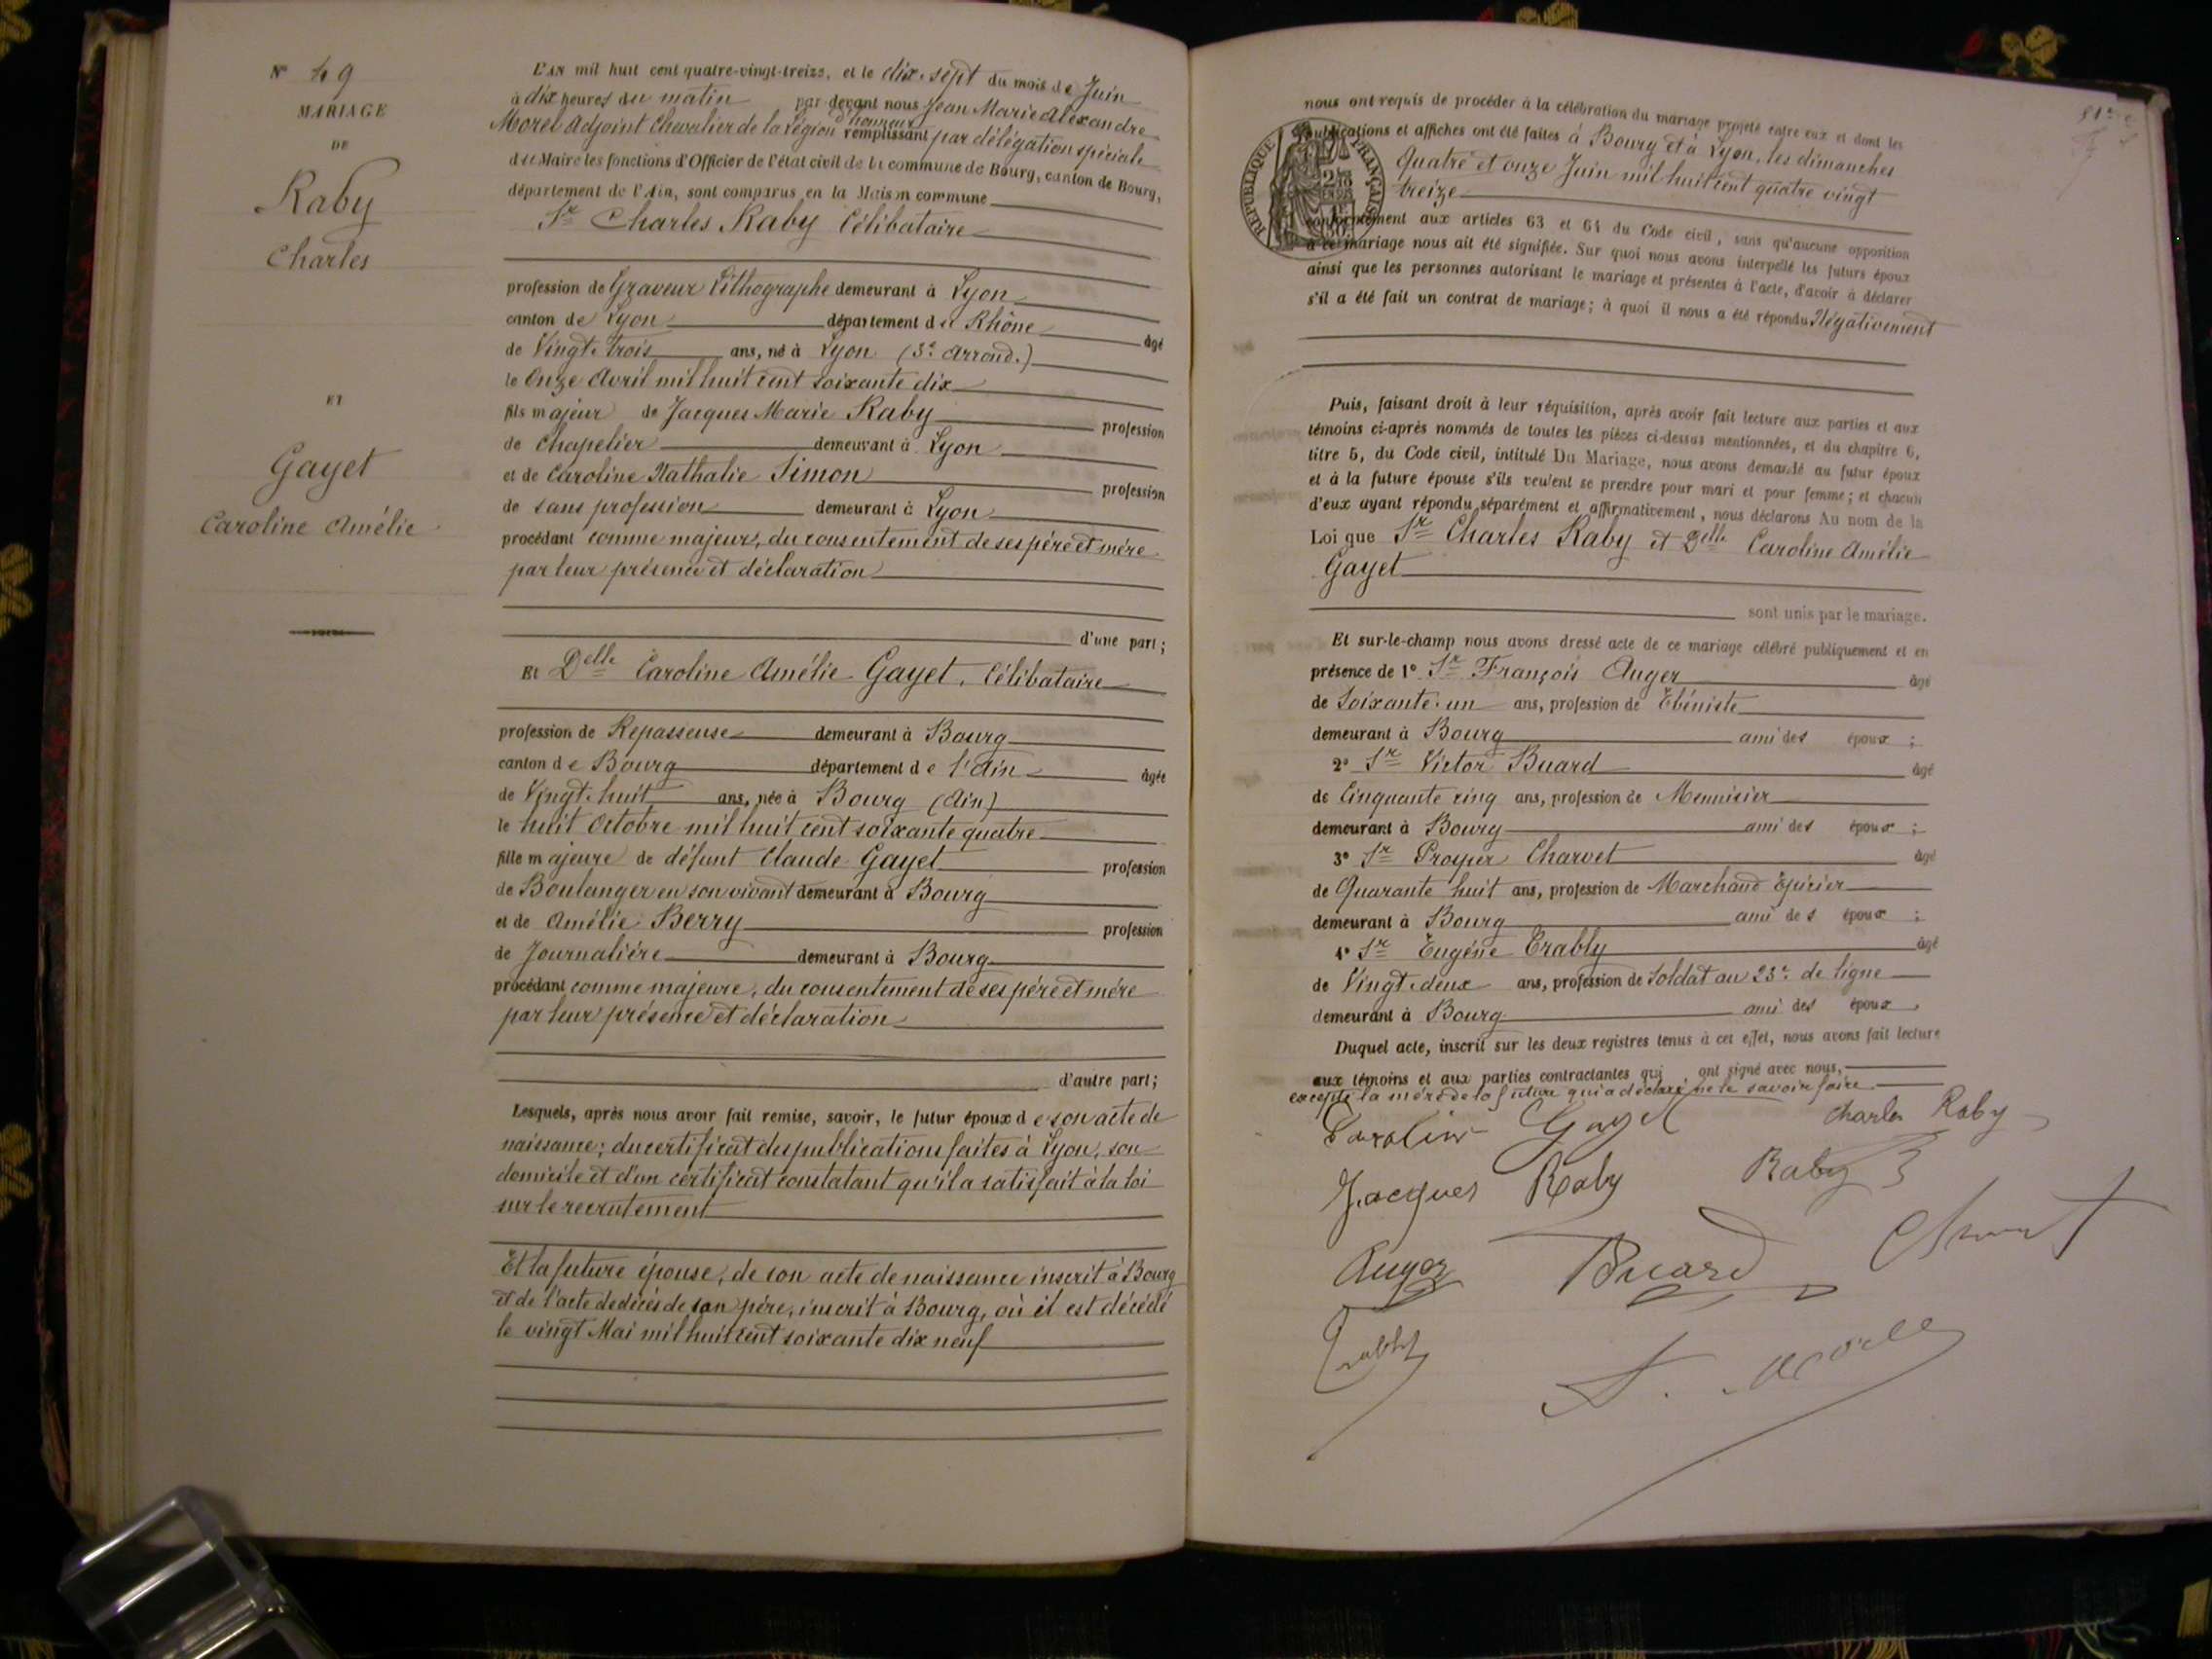 N° 49
MARIAGE
DE
Raby
Charles
ET
Gayet
Caroline Amélie
L'AN mil huit cent quatre-vingt-treize, et le dix-sept du mois de Juin
à dix heures du matin par devant nous Jean Marie Alexandre
Morel Adjoint Chevalier de la Légion d'honneur remplissant par délégation spéciale
du Maire les fonctions d'Officier de l'état civil de la commune de Bourg, canton de Bourg,
département de l'Ain, sont comparus en la Maison commune
Sr Charles Raby Célibataire
profession de Graveur Lithographe demeurant à Lyon
canton de Lyon département du Rhône âgé
de Vingt-trois ans, né à Lyon (3e arrond.)
le Onze Avril mil huit cent soixante dix
fils majeur de Jacques Marie Raby profession
de Chapelier demeurant à Lyon
et de Caroline Nathalie Simon profession
de sans profession demeurant à Lyon
procédant comme majeur, du consentement de ses père et mère
par leur présence et déclaration
d'une part;
Et Delle Caroline Amélie Gayet, Célibataire
profession de Repasseuse demeurant à Bourg
canton de Bourg département de l'Ain âgée
de Vingt-huit ans, née à Bourg (Ain)
le huit Octobre mil huit cent soixante quatre
fille majeure de défunt Claude Gayet profession
de Boulanger en son vivant demeurant à Bourg
et de Amélie Berry profession
de Journalière demeurant à Bourg
procédant comme majeure, du consentement de ses père et mère
par leur présence et déclaration
d'autre part;
Lesquels, après nous avoir fait remise, savoir, le futur époux de son acte de
naissance; du certificat des publications faites à Lyon, son
domicile et d'un certificat constatant qu'il a satisfait à la loi
sur le recrutement
Et la future épouse, de son acte de naissance inscrit à Bourg
et de l'acte de décès de son père, inscrit à Bourg, où il est décédé
le vingt Mai mil huit cent soixante dix neuf
nous ont requis de procéder à la célébration du mariage projeté entre eux et dont les
publications et affiches ont été faites à Bourg et à Lyon, les dimanches
Quatre et onze Juin mil huit cent quatre vingt
treize
RÉPUBLIQUE FRANÇAISE
conformément aux articles 63 et 64 du Code civil, sans qu'aucune opposition
à ce mariage nous ait été signifiée. Sur quoi nous avons interpellé les futurs époux
ainsi que les personnes autorisant le mariage et présentes à l'acte, d'avoir à déclarer
s'il a été fait un contrat de mariage; à quoi il nous a été répondu Négativement
Puis, faisant droit à leur réquisition, après avoir fait lecture aux parties et aux
témoins ci-après nommés de toutes les pièces ci-dessus mentionnées, et du chapitre 6,
titre 5, du Code civil, intitulé Du Mariage, nous avons demandé au futur époux
et à la future épouse s'ils veulent se prendre pour mari et pour femme; et chacun
d'eux ayant répondu séparément et affirmativement, nous déclarons Au nom de la
Loi que Sr Charles Raby et Delle Caroline Amélie
Gayet
sont unis par le mariage.
Et sur-le-champ nous avons dressé acte de ce mariage célébré publiquement et en
présence de 1° Sr François Auger âgé
de Soixante-un ans, profession de Ébéniste
demeurant à Bourg ami des époux ;
2° Sr Victor Buard âgé
de Cinquante cinq ans, profession de Menuisier
demeurant à Bourg ami des époux ;
3° Sr Prosper Charvet âgé
de Quarante huit ans, profession de Marchand Épicier
demeurant à Bourg ami des époux ;
4° Sr Eugène Trably âgé
de Vingt-deux ans, profession de Soldat au 23e de ligne
demeurant à Bourg ami des époux.
Duquel acte, inscrit sur les deux registres tenus à cet effet, nous avons fait lecture
aux témoins et aux parties contractantes qui ont signé avec nous,
excepté la mère de la future qui a déclaré ne le savoir faire.
Caroline Gayet Charles Raby
Jacques Raby Raby
Auger Buard Charvet
Trably A. Morel